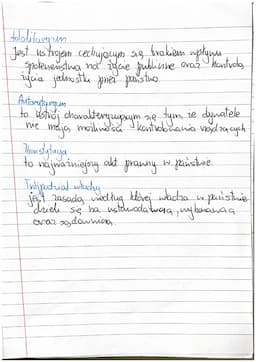 totalitaryzm
jest ustrojem cechującym się brakiem wpływu
społeczeństwa na życie publiczne oraz kontrolą
życia jednostki przez państwo.
Autorytaryzm
to ustrój charakteryzujący się tym, że obywatele
nie mają możliwości kontrolowania rządzących
Konstytucja
to najważniejszy akt prawny w państwie.
Trójpodział władzy
jest zasadą według której władza w państwie
dzieli się na ustawodawczą, wykonawczą
oraz sądowniczą.